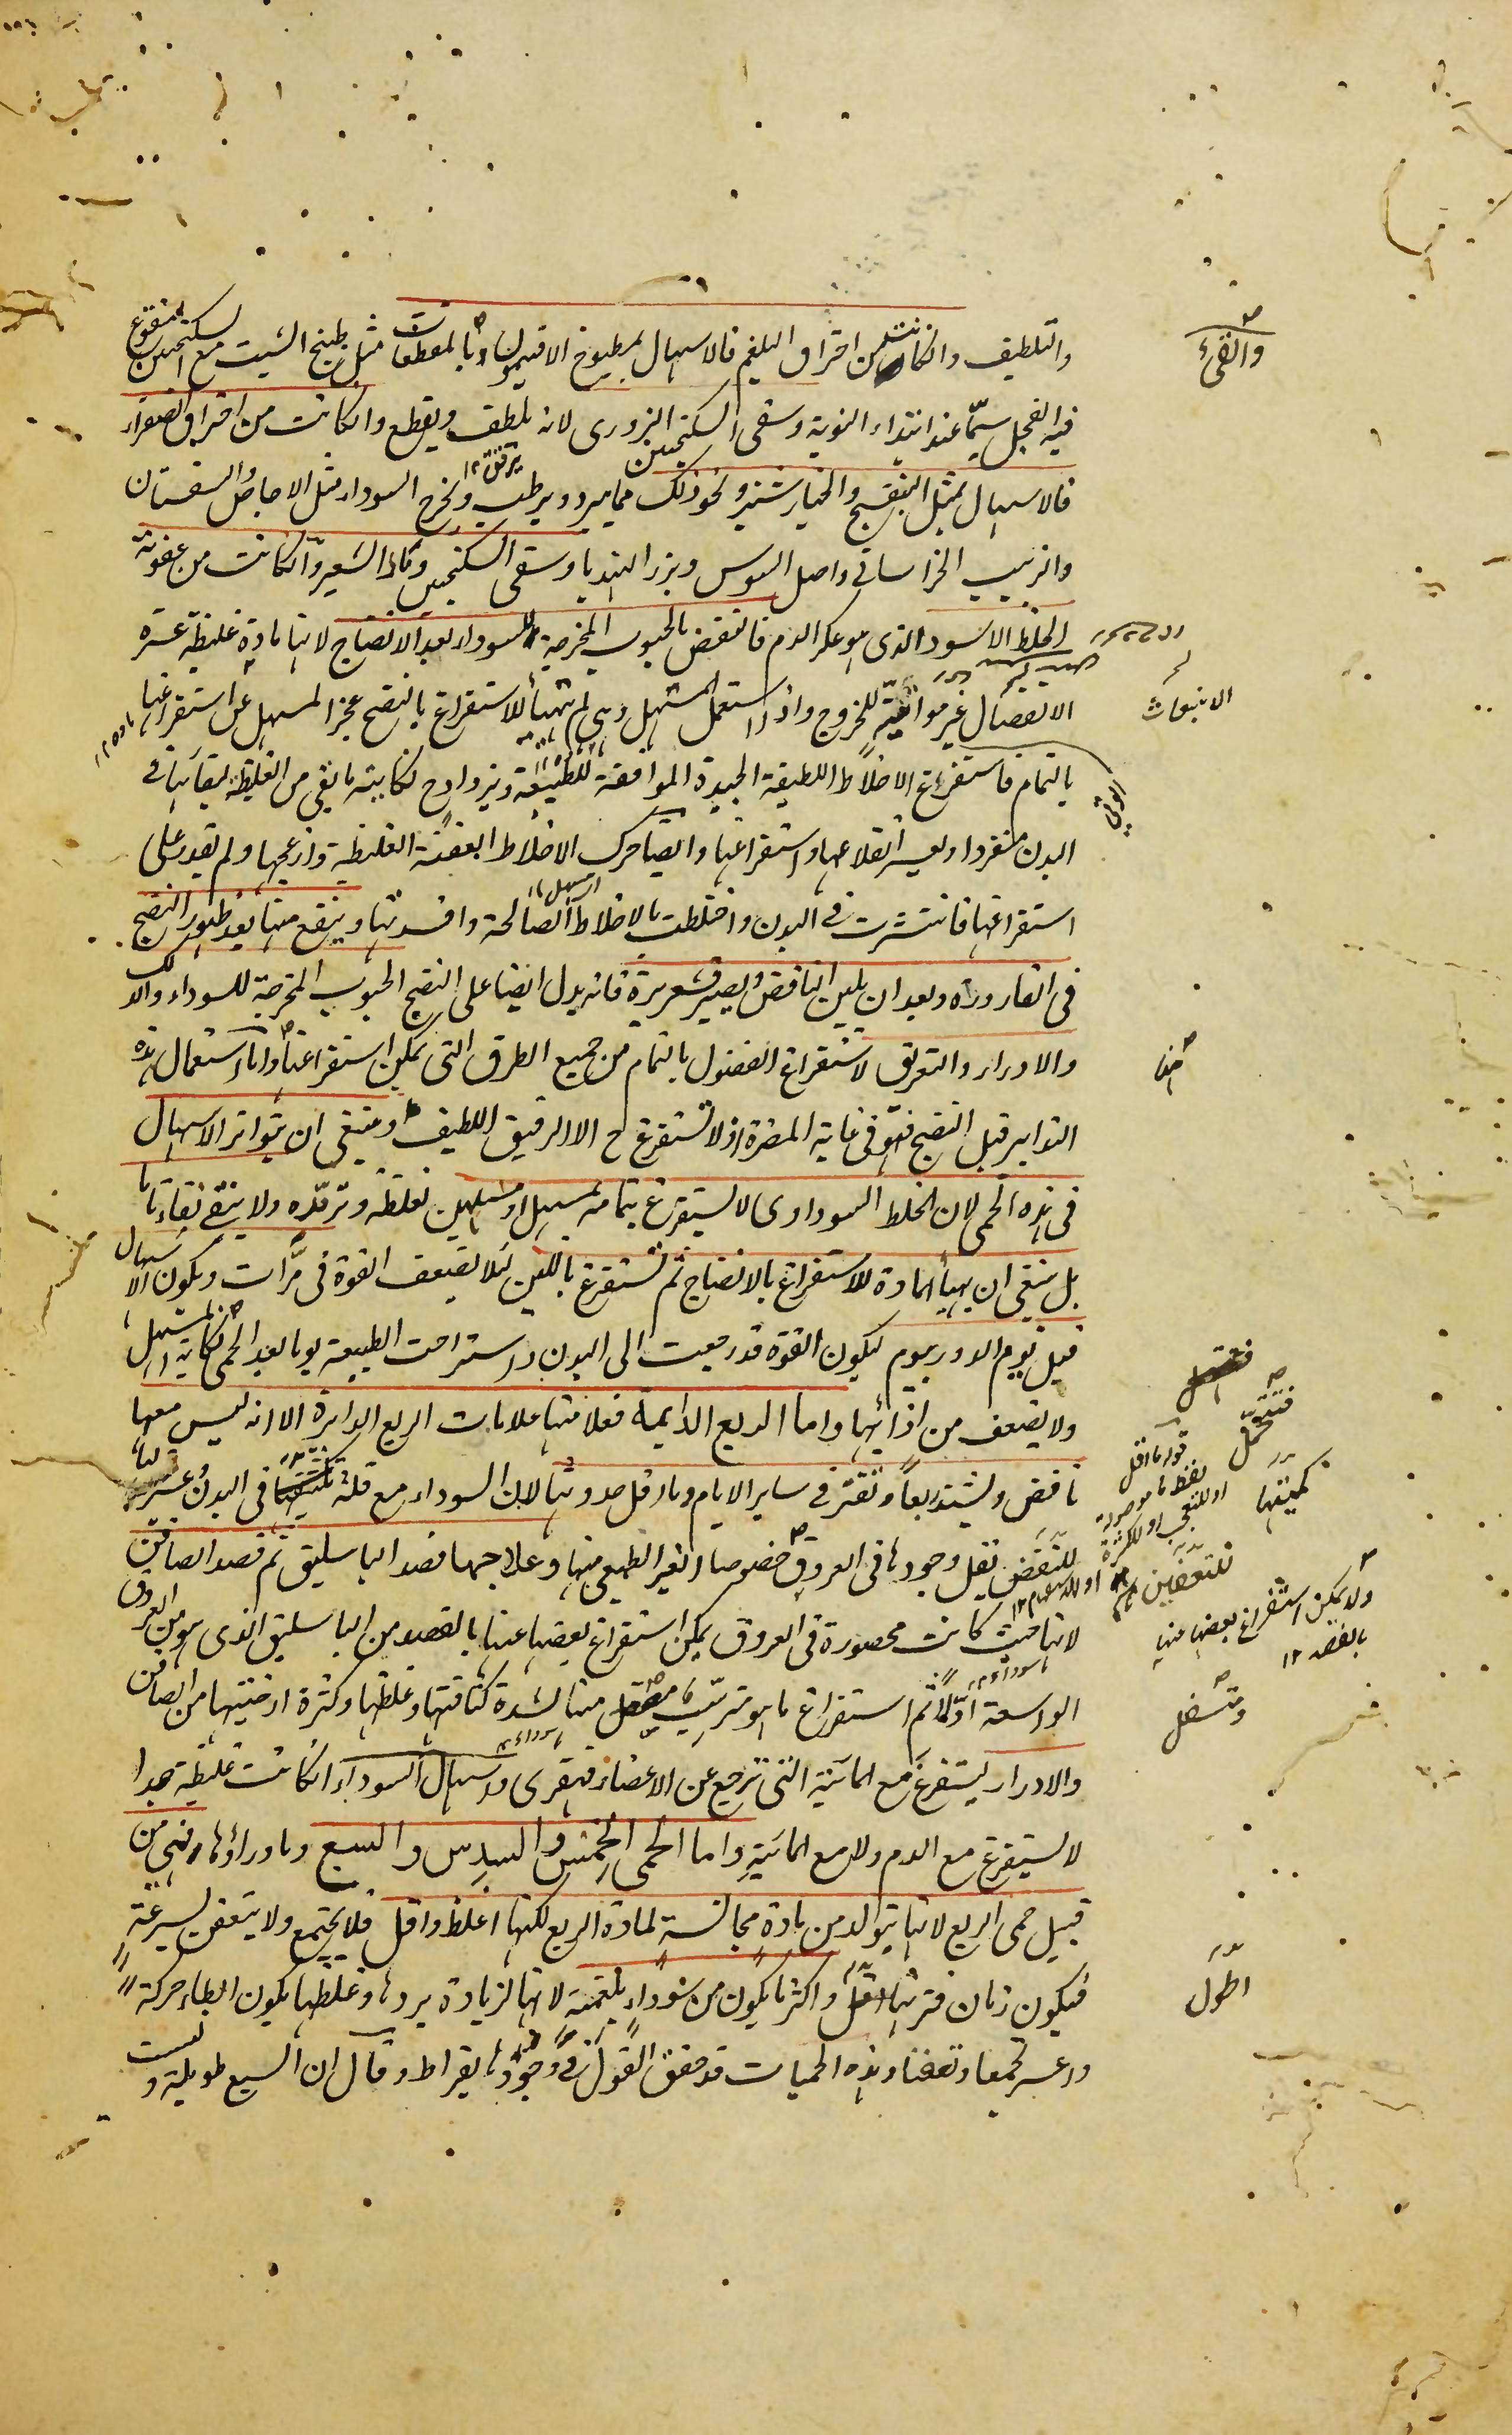 والتلطيف وانكانت من احتراق البلغم فالاسهال بمطبوخ الافتيمون وبالمقطعات مثل طبيخ الشبت مع السكنجبين المنقوع
والقئ
فيه الفجل سيما عند ابتداء النوبة وسقى السكنجبين البزورى لانه يلطف ويقطع وانكانت من احتراق الصفراء
فالاسهال بمثل البنفسج والخيارشنبر ونحو ذلك مما يبرد ويرطب ويخرج السوداء مثل الاجاص والسفستان
والزبيب الخراسانى واصل السوس وبزر الهندبا وسقى السكنجبين وماء الشعير وانكانت من عفونة
الخلط الاسود الذى هو عكر الدم فالنفض بالحبوب المخرجة للسوداء بعد الانضاج لانها مادة غليظة عسرة
الانفصال غير مواتية للخروج واذا استعمل المسهل وهى لم تتهيأ للاستفراغ بالنضج عجز المسهل عن استفراغها
الانبعاث
بالتمام فاستفرغ الاخلاط اللطيفة الجيدة الموافقة للطبيعة ويزداد ح نكاية ما بقى من الغليظة لبقائها فى
البدن منفردا ويعسر انقلاعها واستفراغها وايضا حرك الاخلاط العفنة الغليظة وازعجها ولم يقدر على
استفراغها فانتشرت فى البدن واختلطت بالاخلاط الصالحة وافسدتها وينفع منها بعد ظهور النضج
فى القارورة وبعد ان يلين النافض ويصير قشعريرة فانه يدل ايضا على النضج الحبوب المخرجة للسوداء والدلك
والادرار والتعريق لاستفراغ الفضول بالتمام من جميع الطرق التى يمكن استفراغها واما استعمال هذه
التدابير قبل النضج فهو فى غاية المضرة اذ لا تستفرغ ح الا الرقيق اللطيف وينبغى ان يتواتر الاسهال
فى هذه الحمى لان الخلط السوداوى لا يستفرغ بتمامه بمسهل او مسهلين لغلظه وتمرده ولا ينقى نقاء تاما
بل ينبغى ان يهيأ المادة للاستفراغ بالانضاج ثم تستفرغ باللين لئلا تضعف القوة فى مرات ويكون الاسهال
قبل يوم الدور بيوم ليكون القوة قد رجعت الى البدن واستراحت الطبيعة يوما بعد الحمى نكاية المسهل
ولا يضعف من اذائها واما الربع الدايمة فعلامتها علامات الربع الدايرة الا انه ليس معها
نافض ويشتد ربعا وتفتر فى ساير الايام وما اقل حدوثها لان السوداء مع قلة كميتها فى البدن عسرة
للتعفن يقل وجودها فى العروق خصوصا الغير الطبيعى منها وعلاجها فصد الباسليق ثم فصد الصافن
لانها حيث كانت محصورة فى العروق يمكن استفراغ بعضها عنها بالفصد من الباسليق الذى هو من العروق
ولا يمكن استفراغ بعضها عنها
بالفصد ١٢
الواسعة اولا ثم استفراغ ما هو مترسب منها لشدة كثافتها وغلظها وكثرة ارضيتها من الصافن
ومتسفل
والادرار ليستفرغ مع المائية التى ترجع عن الاعضاء واسهال السوداء انكانت غليظة جدا
لا يستفرغ مع الدم ولا مع المائية واما الحمى الخمس والسدس والسبع وما وراؤها فهى من
قبيل حمى الربع لانها يتولد من مادة مجانسة لمادة الربع لكنها اغلظ واقل فلا يجتمع ولا يتعفن بسرعة
فيكون زمان فترتها اطول واكثر ما يكون من سوداء بلغمية لانها لزيادة بردها وغلظها يكون ابطاء حركة
اطول
واعسر تجمعا وتعفنا وهذه الحميات قد حقق القول فى وجودها بقراط وقال ان السبع طويلة وليست